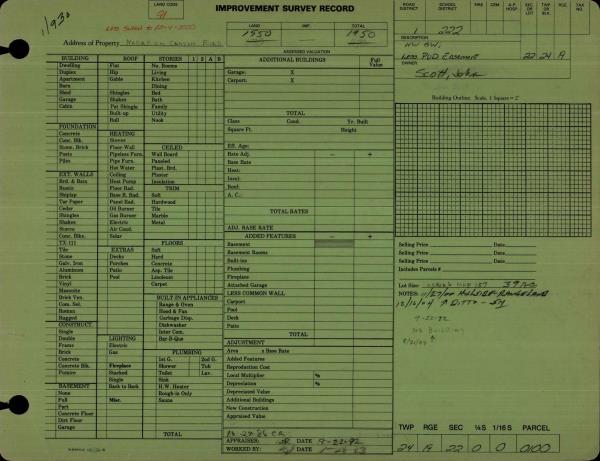 IMPROVEMENT SURVEY RECORD
LAND CODE
91
11930
Address of Property
LAND IMP. TOTAL
1550 1950
ROAD DISTRICT SCHOOL DISTRICT FIRE CEM A.P. HOSP SEC OR LOT TWP OR BLK RGE TAX NO.
1 222
DESCRIPTION
NW SW,
Less PUD Easement 22 24 19
OWNER
Scott, John
ASSESSED VALUATION
BUILDING ROOF STORIES 1 2 A B
Dwelling Flat No. Rooms
Duplex Hip Living
Apartment Gable Kitchen
Barn Dining
Shed Shingles Bed
Garage Shakes Bath
Cabin Pat Shingle Family
Built-up Utility
Roll Nook
FOUNDATION
Concrete HEATING
Conc. Blk. Stoves CEILED
Stone, Brick Floor-Wall Wall Board
Posts Pipeless Furn. Paneled
Piles Pipe Furn. Plast. Brd.
Hot Water Plaster
EXT. WALLS Ceiling Insulation
Brd. & Bats Heat Pump
Rustic Floor Rad. TRIM
Shiplap Base B. Rad. Soft
Tar Paper Panel Rad. Hardwood
Cedar Oil Burner Tile
Shingles Gas Burner Marble
Shakes Electric Metal
Stucco Air Cond.
Conc. Blks. Solar FLOORS
TX-111
Tile EXTRAS Soft
Stone Decks Hard
Galv. Iron Porches Concrete
Aluminum Patio Asp. Tile
Brick Pool Linoleum
Vinyl Carpet
Masonite
Brick Ven. BUILT-IN APPLIANCES
Com. Sel. Range & Oven
Bottom Hood & Fan
Rugged Garbage Disp.
CONSTRUCT. Dishwasher
Single Inter Com.
Double LIGHTING Bar-B-Que
Frame Electric
Brick Gas PLUMBING
Concrete 1st G. 2nd G.
Concrete Blk. Fireplace Shower Tub
Pumice Stacked Toilet Lav.
Single Sink
BASEMENT Back to Back H.W. Heater
None Rough-in Only
Full Misc. Sauna
Part
Concrete Floor
Dirt Floor
Garage TOTAL
ADDITIONAL BUILDINGS Full Value
Garage: X
Carport: X
TOTAL
Class Cond. Yr. Built
Square Ft. Height
Eff. Age:
Rate Adj. — +
Base Rate
Heat:
Insul:
Roof:
A. C.:
TOTAL RATES
ADJ. BASE RATE
ADDED FEATURES — +
Basement
Basement Rooms
Built-ins
Plumbing
Fireplace
Attached Garage
LESS COMMON WALL
Carport
Pool
Deck
Patio
TOTAL
ADJUSTMENT
Area x Base Rate
Added Features
Reproduction Cost
Local Multiplier %
Depreciation %
Depreciated Value
Additional Buildings
New Construction
Appraised Value
APPRAISER: DATE 9-22-92
WORKED BY: DATE
Building Outline: Scale, 1 Square = 2'
Selling Price Date
Selling Price Date
Selling Price Date
Includes Parcels #
Lot Size:
NOTES:
9-22-92
No Building
TWP RGE SEC ¼S 1/16 S PARCEL
24 19 22 0 0 0100